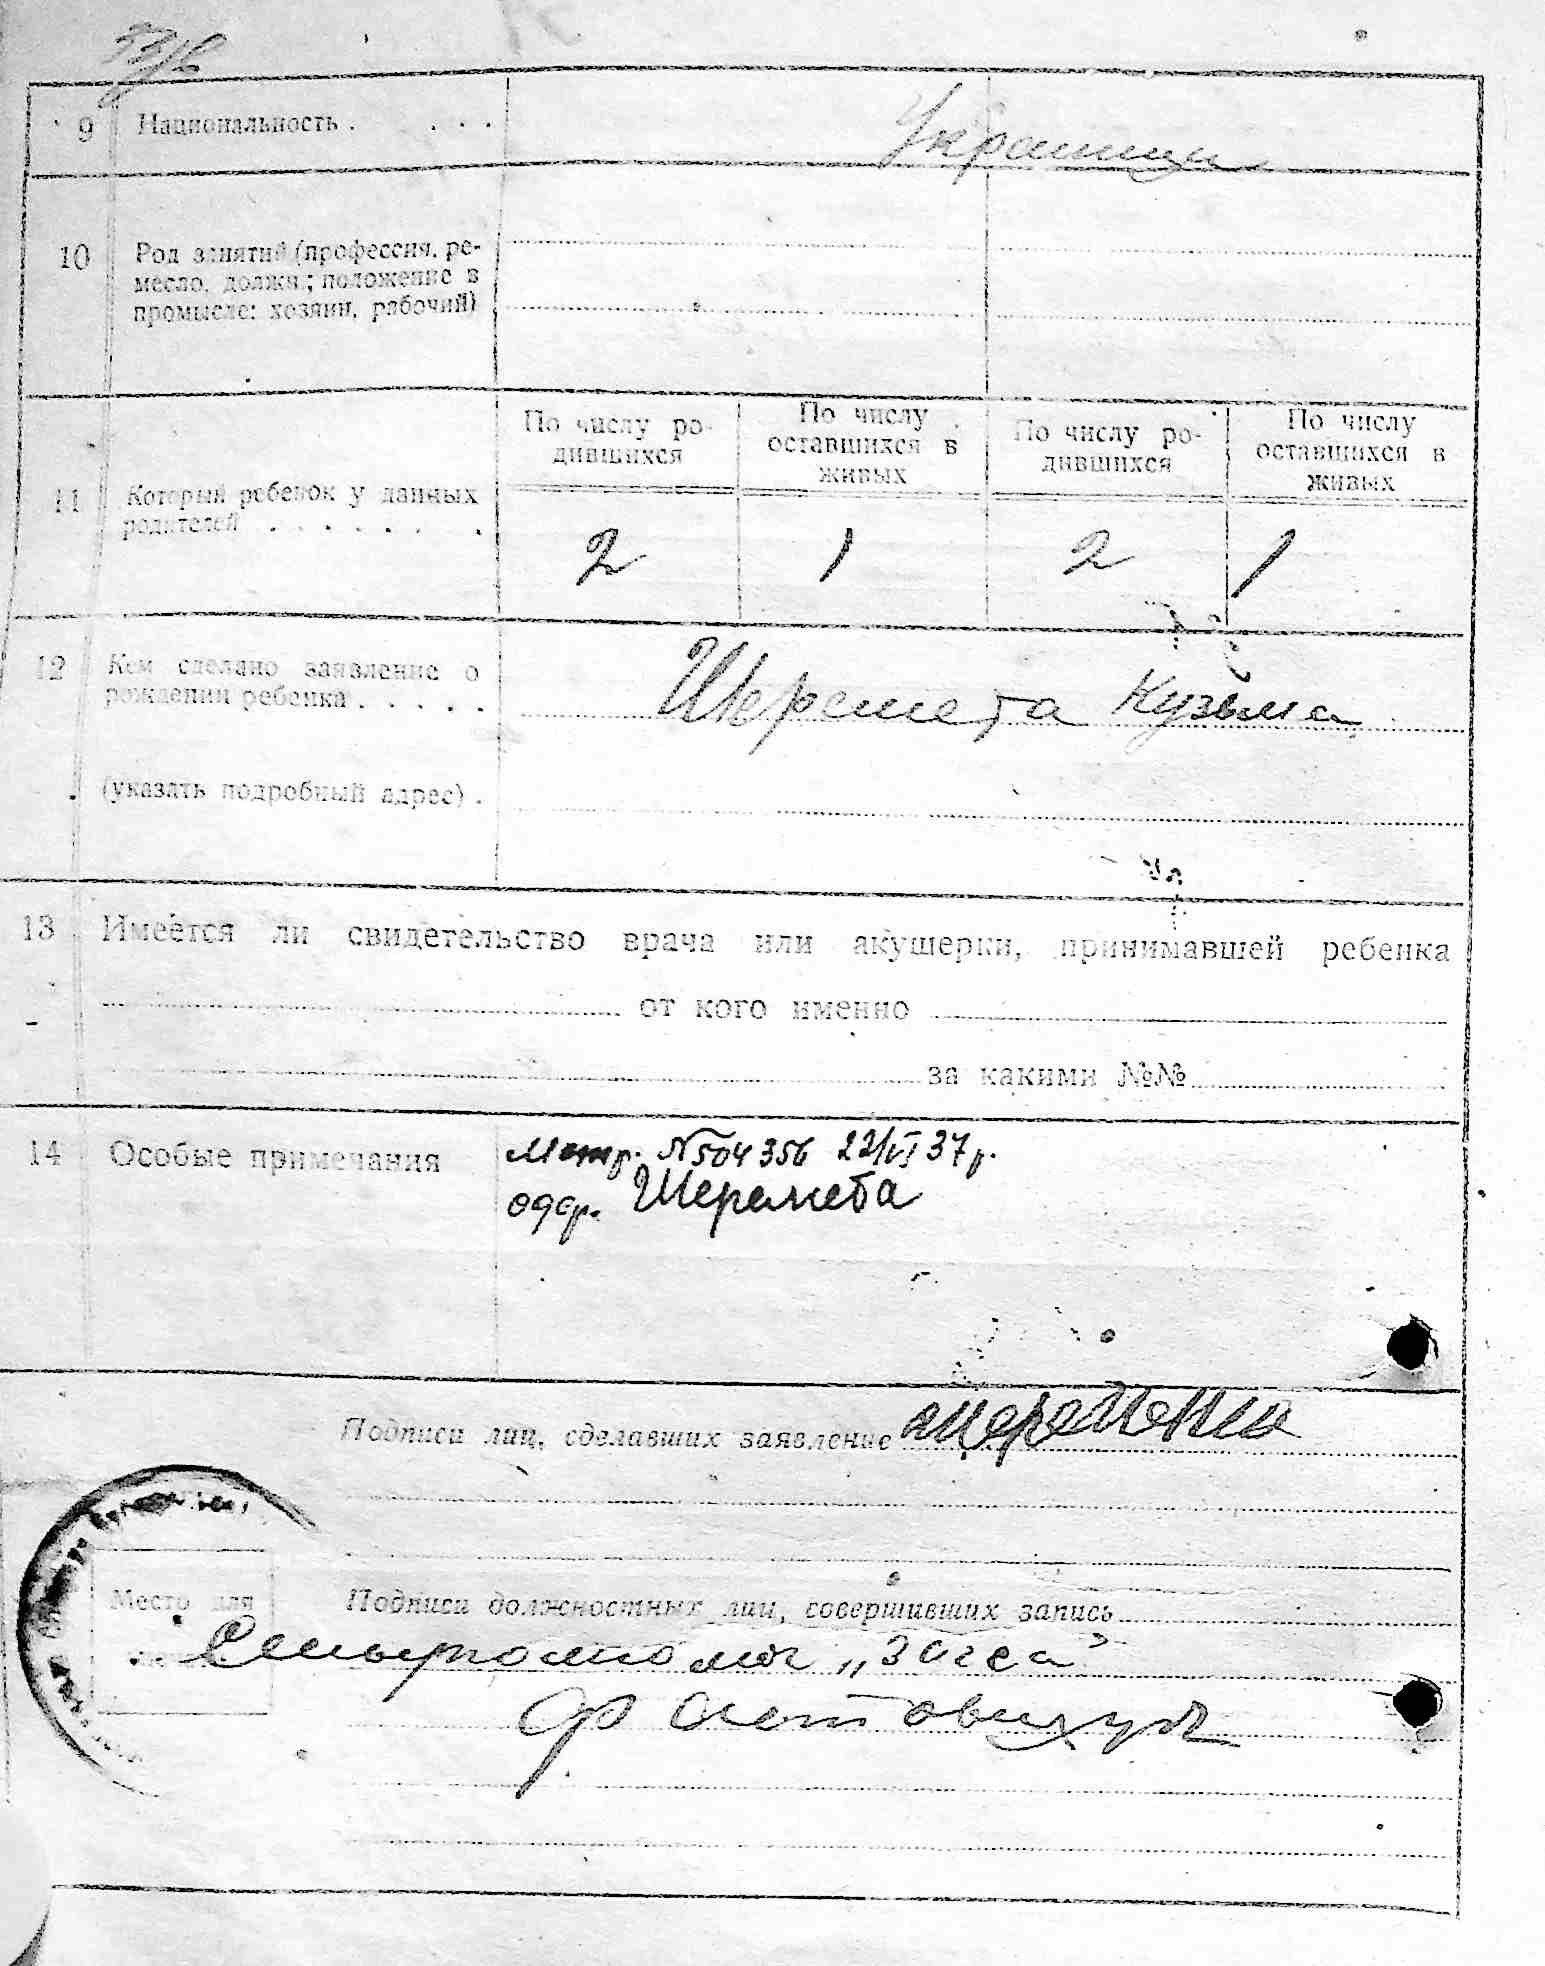 9 Национальность . . . .
Украинцы
10 Род занятий (профессия, ре-
месло, должн.; положение в
промысле: хозяин, рабочий)
По числу ро-
дившихся
По числу
оставшихся в
живых
По числу ро-
дившихся
По числу
оставшихся в
живых
11 Который ребенок у данных
родителей . . . . . . .
2 1 2 1
12 Кем сделано заявление о
рождении ребенка . . . . .
Шеремета Кузьма
(указать подробный адрес) .
13 Имеется ли свидетельство врача или акушерки, принимавшей ребенка
от кого именно
за какими №№
14 Особые примечания
Метр. №504356 22/VI 37 р.
одер. Шеремета
Подписи лиц, сделавших заявление
Подписи должностных лиц, совершивших запись
Место для
"Загса"